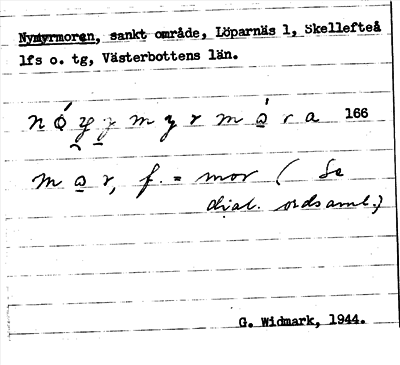 Nymyrmoren, sankt område, Löparnäs 1, Skellefteå
lfs o. tg, Västerbottens län.
166
f. = mor ( Se
dial. ordsaml.)
G. Widmark, 1944.